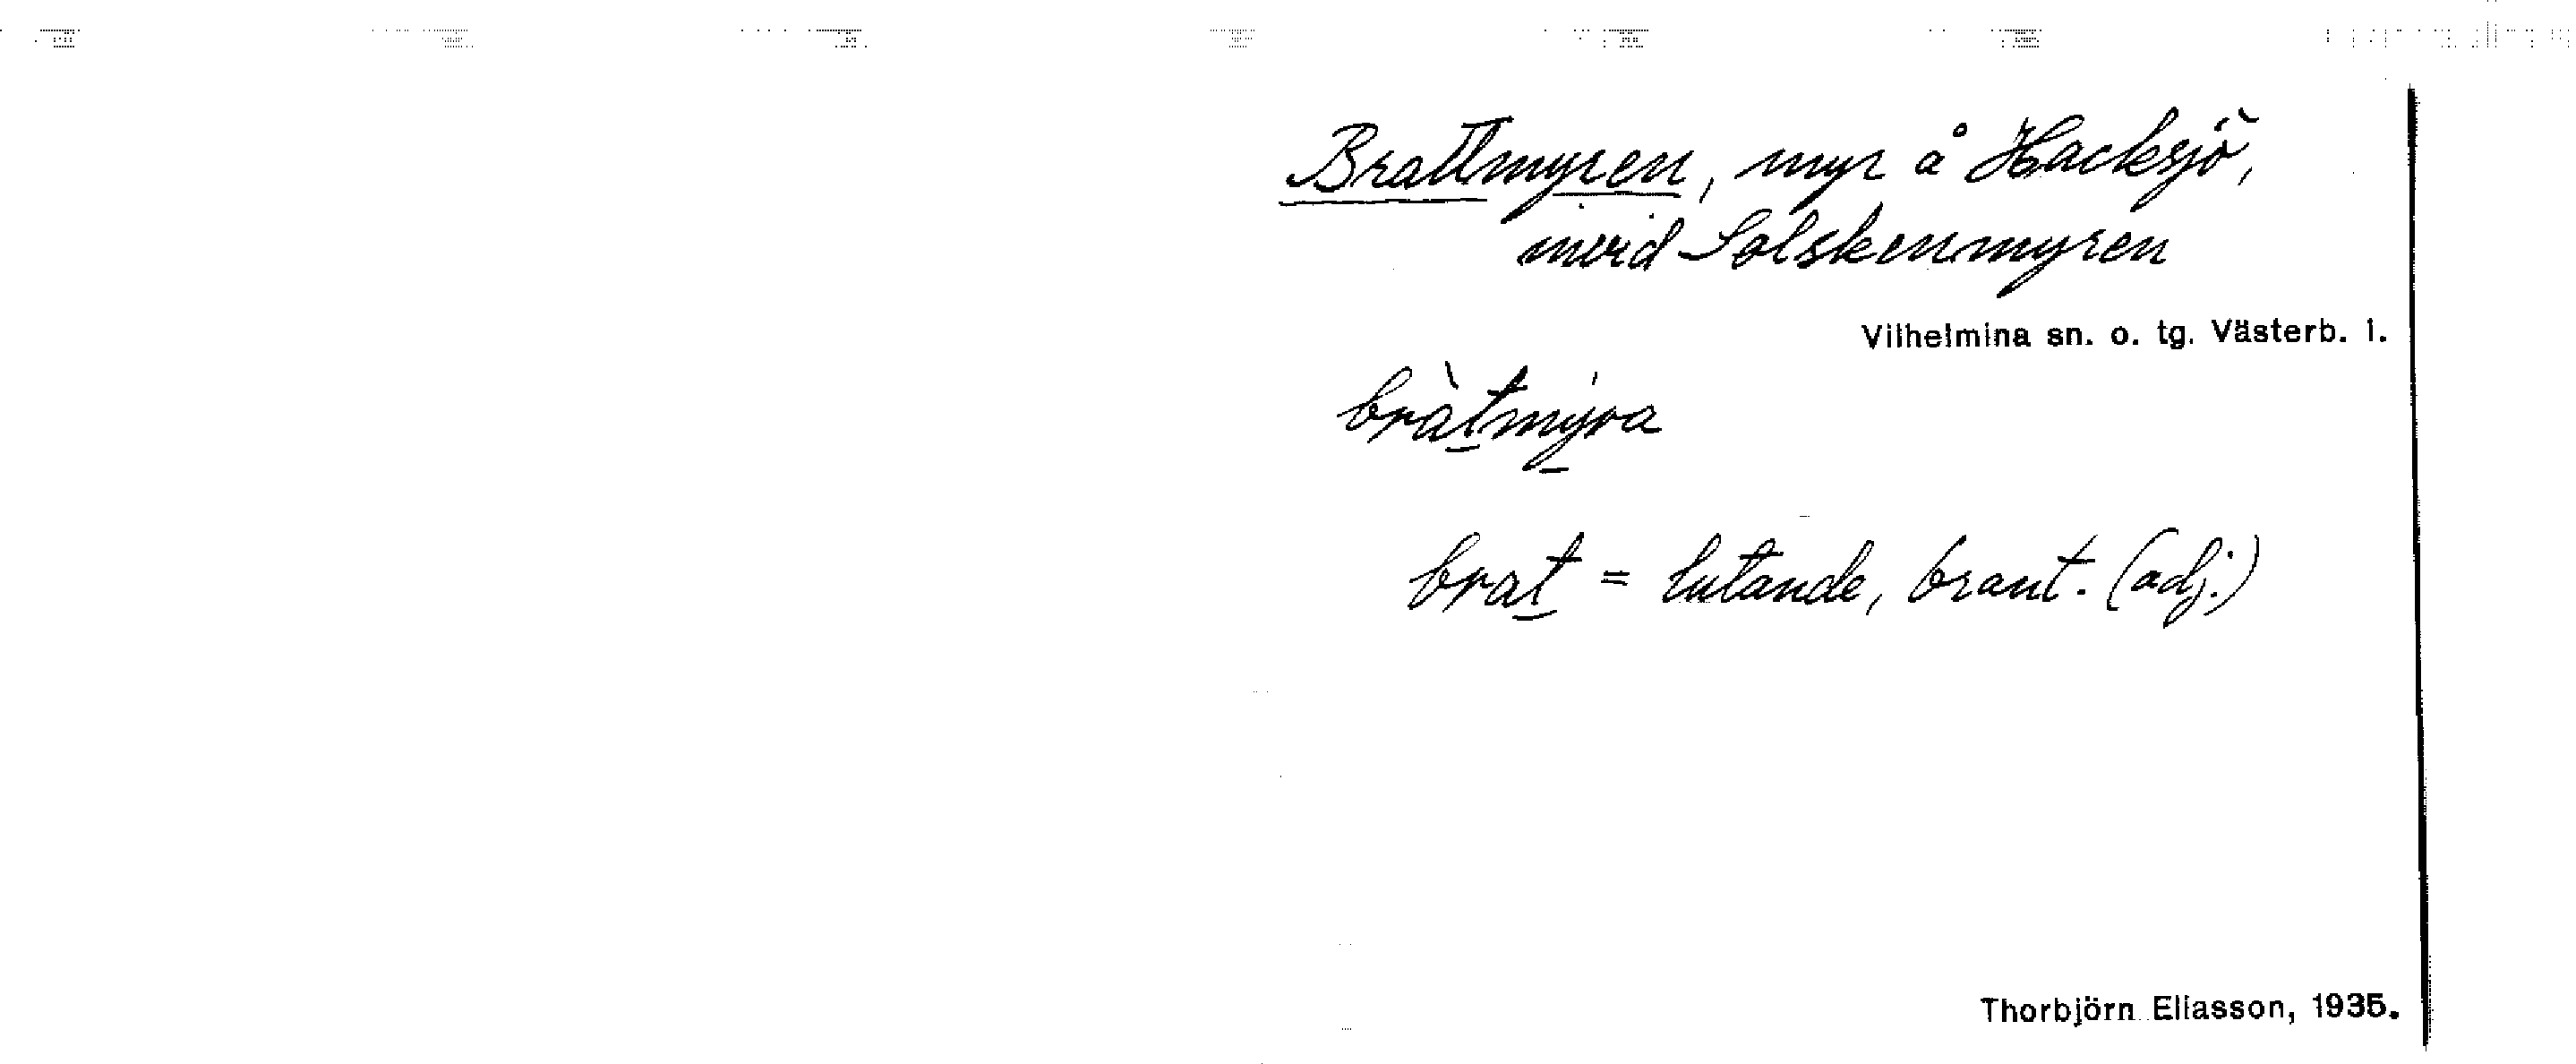 Brattmyren, myr å Hacksjö,
invid Solskenmyren
Vilhelmina sn. o. tg. Västerb. l.
bràtmýra
brat = lutande, brant. (adj.)
Thorbjörn Eliasson, 1935.